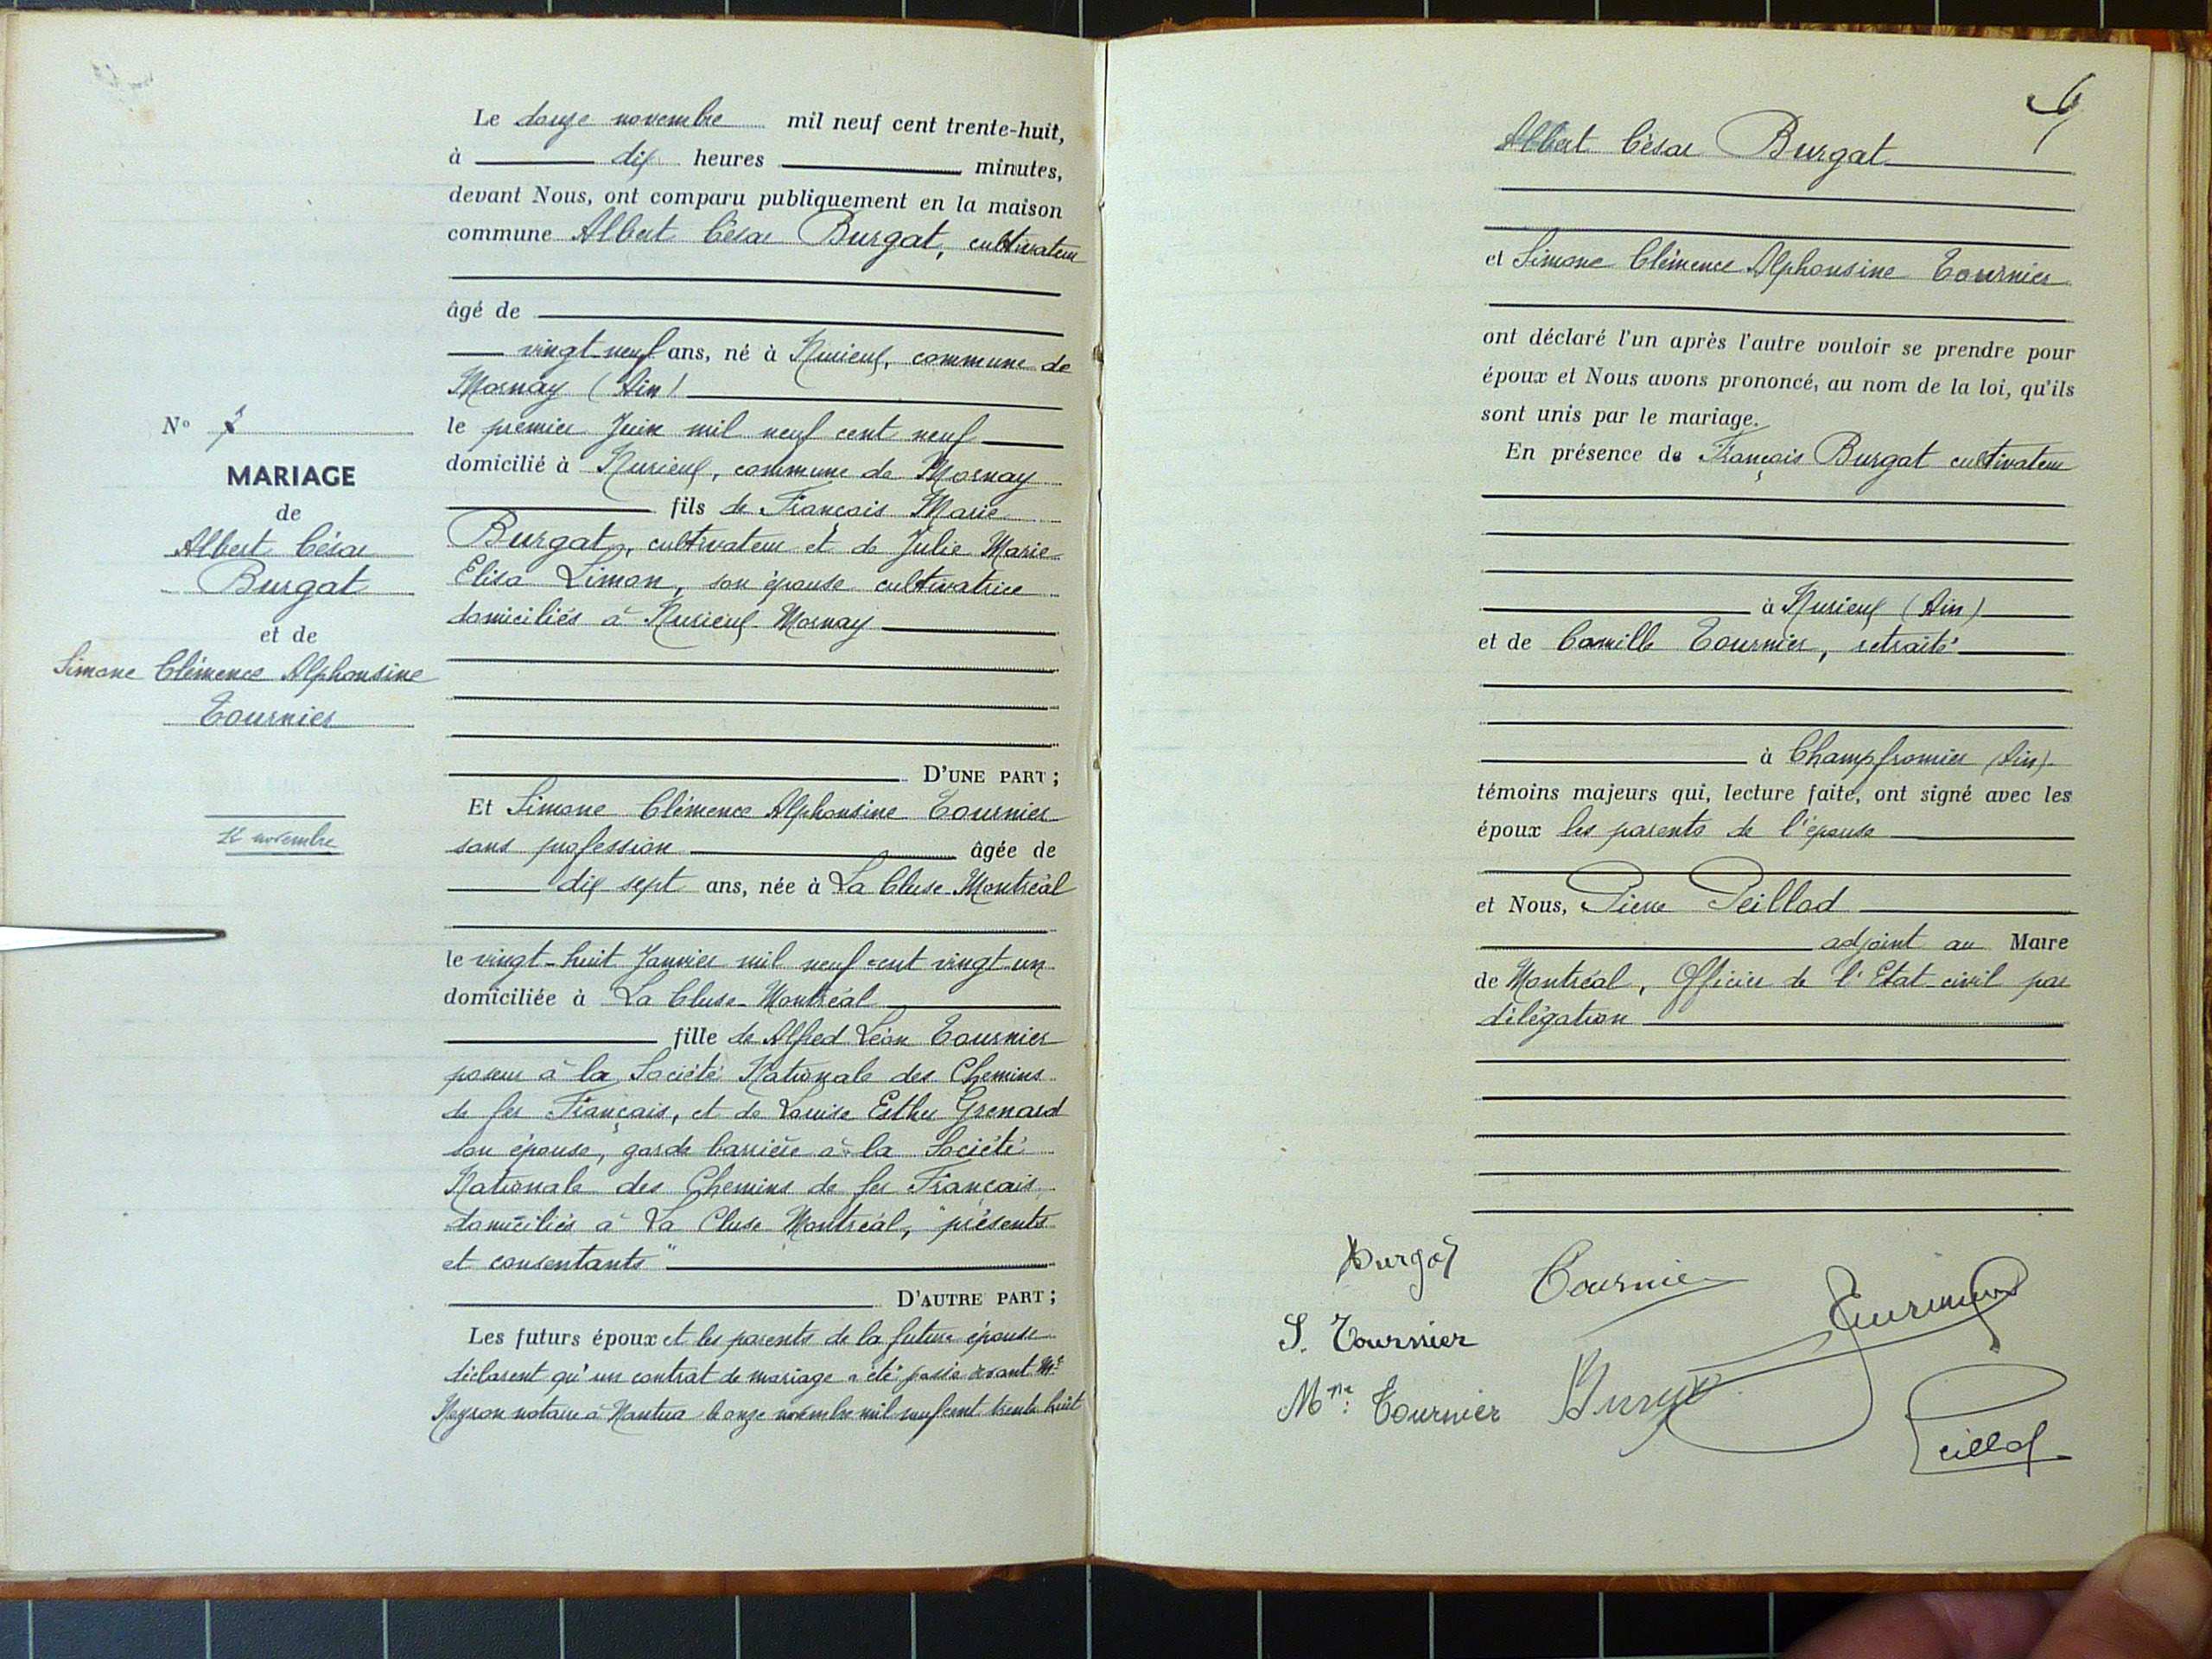 N° 7
MARIAGE
de
Albert César
Burgat
et de
Simone Clémence Alphonsine
Tournier
12 novembre
Le douze novembre mil neuf cent trente-huit,
à dix heures minutes,
devant Nous, ont comparu publiquement en la maison
commune Albert César Burgat, cultivateur
âgé de
vingt-neuf ans, né à Nurieux, commune de
Mornay (Ain)
le premier Juin mil neuf cent neuf
domicilié à Nurieux, commune de Mornay
fils de François Marie
Burgat, cultivateur et de Julie Marie
Elisa Limon, son épouse cultivatrice
domiciliés à Nurieux-Mornay
D'UNE PART ;
Et Simone Clémence Alphonsine Tournier
sans profession âgée de
dix sept ans, née à La Cluse-Montréal
le vingt-huit Janvier mil neuf cent vingt un
domiciliée à La Cluse-Montréal
fille de Alfred Léon Tournier
poseur à la Société Nationale des Chemins
de fer Français, et de Louise Esther Grenard
son épouse, garde barrière à la Société
Nationale des Chemins de fer Français
domiciliés à La Cluse Montréal, "présents
et consentants"
D'AUTRE PART ;
Les futurs époux et les parents de la future épouse
déclarent qu'un contrat de mariage a été passé devant Me
Neyron notaire à Nantua le onze novembre mil neuf cent trente huit
Albert César Burgat
et Simone Clémence Alphonsine Tournier
ont déclaré l'un après l'autre vouloir se prendre pour
époux et Nous avons prononcé, au nom de la loi, qu'ils
sont unis par le mariage.
En présence de François Burgat cultivateur
à Nurieux (Ain)
et de Camille Tournier, retraité
à Champfromier (Ain).
témoins majeurs qui, lecture faite, ont signé avec les
époux les parents de l'épouse
et Nous, Pierre Peillod
adjoint au Maire
de Montréal, Officier de l'Etat-civil par
délégation
Burgat Tournier Tournier
S. Tournier
Mme Tournier Burgat
Peillod